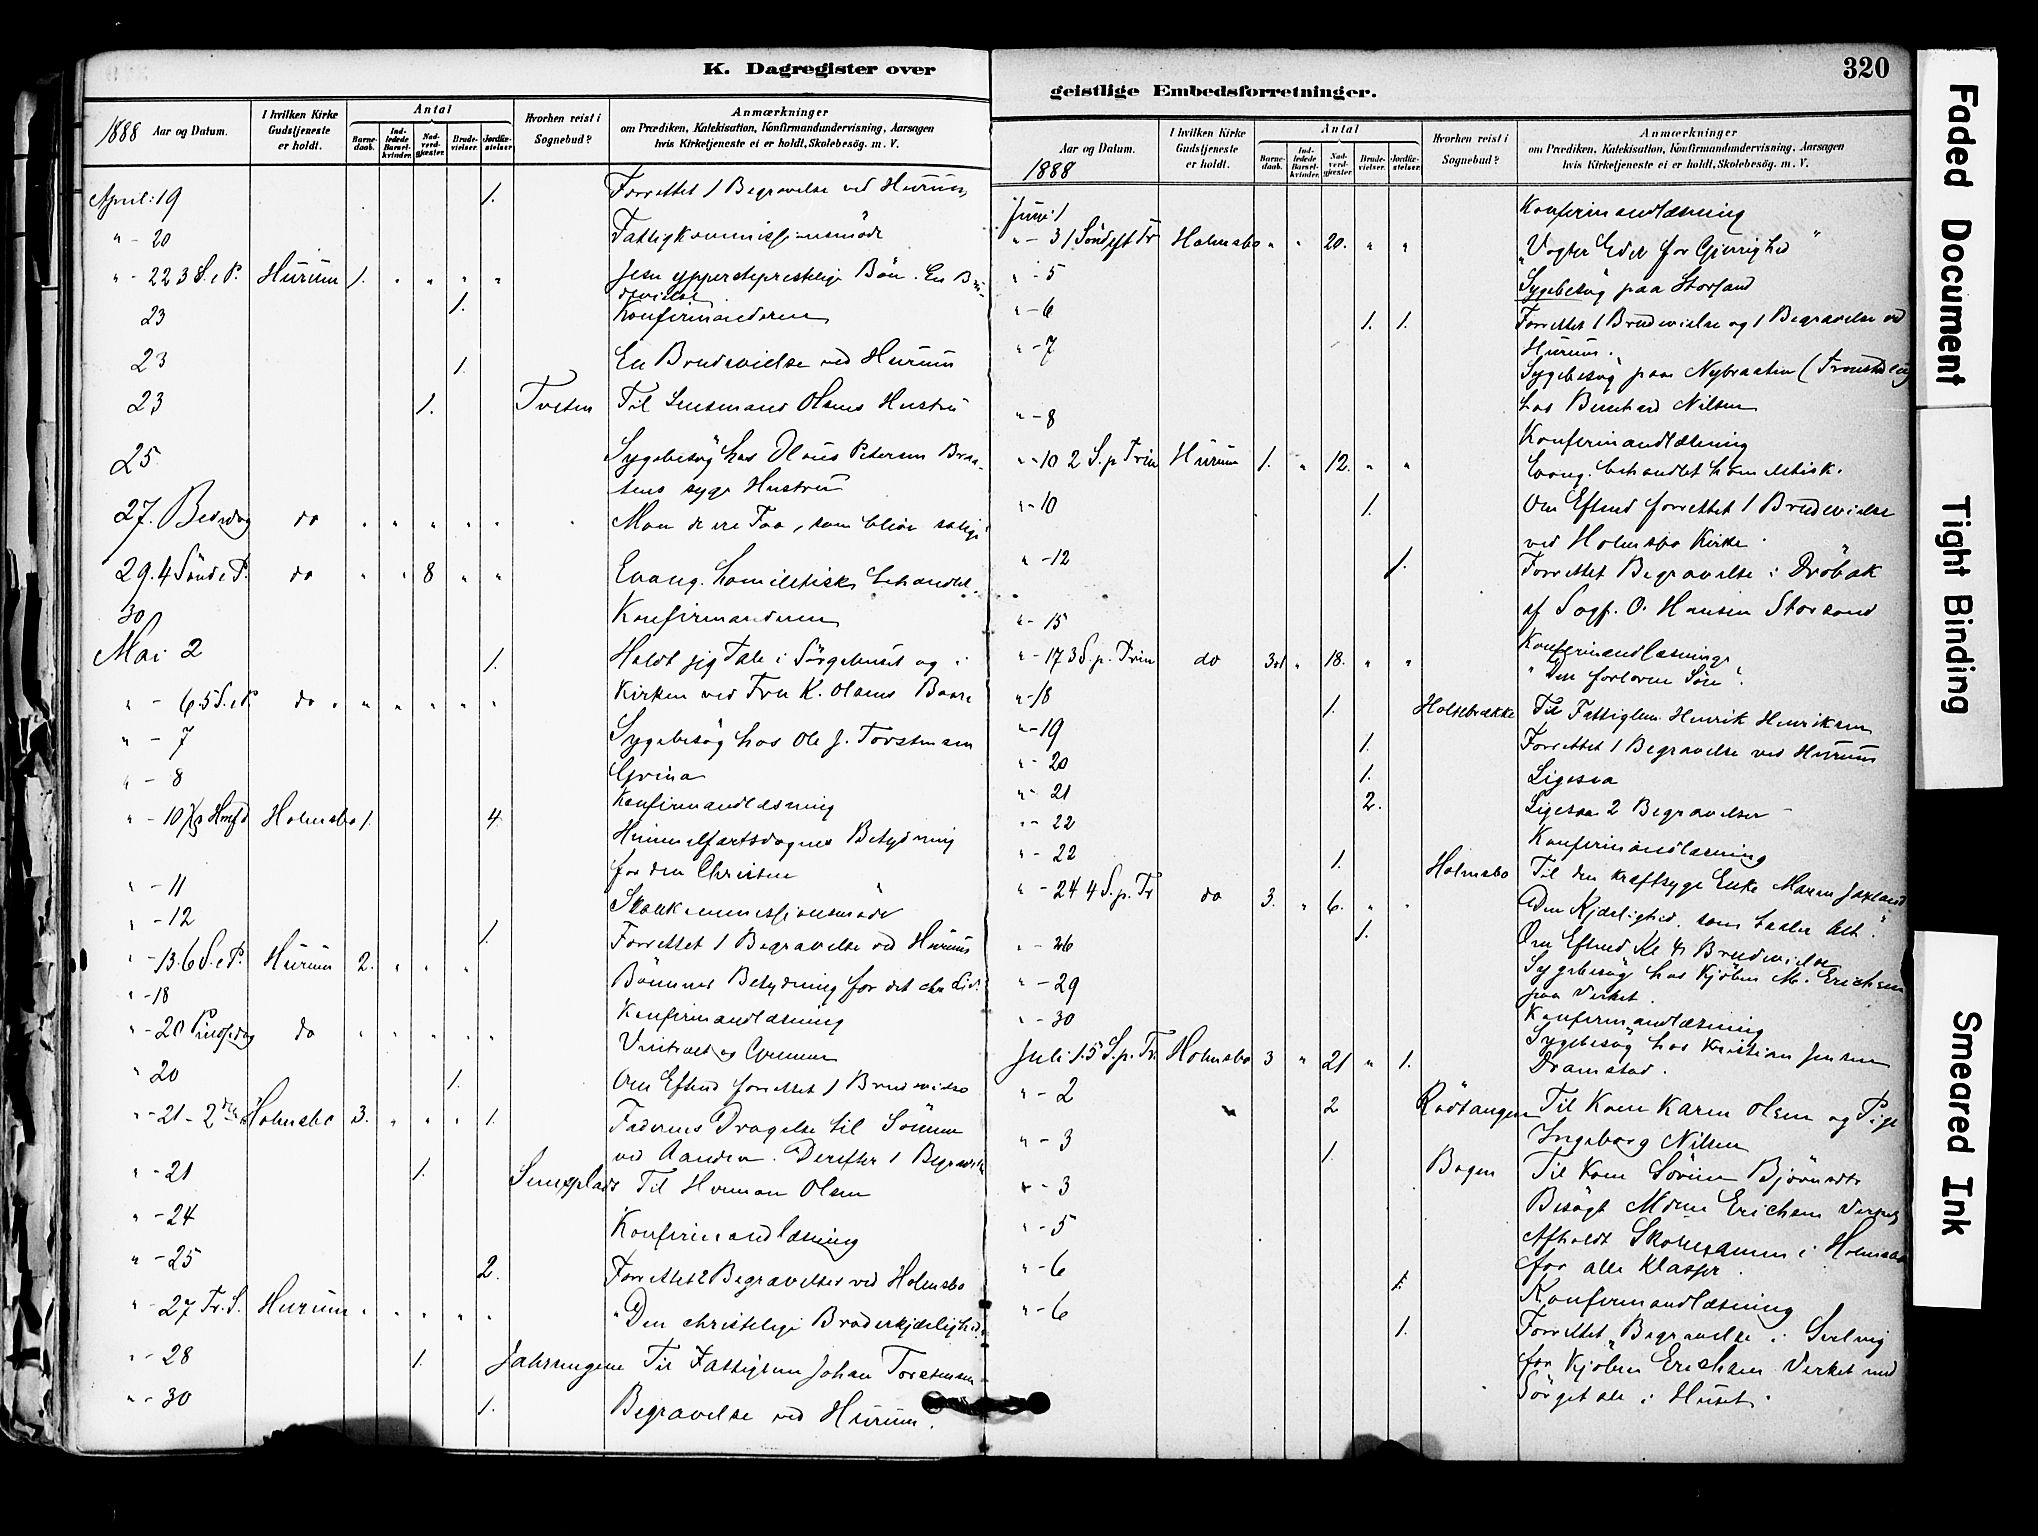 K. Dagregister over
1888 Aar og Datum.
I hvilken Kirke Gudstjeneste er holdt.
Antal
Barnedaab.
Indledede Barselkvinder.
Nadverdgjæster.
Brudevielser.
Jordfæstelser.
Hvorhen reist i Sognebud?
Anmærkninger
om Prædiken, Katekisation, Konfirmandundervisning, Aarsagen
hvis Kirketjeneste ei er holdt, Skolebesøg. m. V.
April 19 1. Forrettet 1 Begravelse ved Hurum
" - 20 Fattigkommissionsmøde
" - 22 3 S. e P. Hurum 1. " " " " Jesu ypperstepræstelige Bøn. En Bru-
devielse
23 1. Konfirmanderne
23 1. En Brudevielse ved Hurum
23 1. Tveten Til Lensmand Olsens Hustru
25 Sygebesøg hos Olaus Petersen Braa-
tens syge Hustru
27. Bededag do " " " " " Mon de ere Faa, som blive salige
29. 4 Sønd e P. do " " 8 " " Evang. homiletisk behandlet.
30 Konfirmanderne
Mai 2 1. Holdt jeg Tale i Sørgehuset og i
" - 6. 5 S. e P. do " " " " " Kirken ved Fru K. Olsens Baare
" - 7 Sygebesøg hos Ole J. Torstensen
" - 8 Grina
Konfirmandlæsning
" - 10 Kr Hmfd Holmsbo 1. 4. Himmelfartsdagens Betydning
for den Christne
" - 11 Skolekommissionsmøde
" - 12 1. Forrettet 1 Begravelse ved Hurum
" - 13. 6 S. e P. Hurum 2. " " " Bønnens Betydning for det chr. Liv.
" - 18 Konfirmandlæsning
" - 20 Pindsedag do " " " " "
" 20 1. Om Efterd forrettet 1 Brudevielse
" - 21 - 2den Holmsbo 3. " " " 1. Faderens Dragelse til Sønnen
ved Aanden. Derefter 1 Begravelse
" - 21 1. Til Herman Olsen
" - 24 Konfirmandlæsning
" - 25 2. Forrettet 2 Begravelser ved Holmsbo
" - 27 Tr. S. Hurum " " " " " "Den christelige Broderkjærlighed"
" - 28 1. Til Fattiglem Johan Torstensen
" - 30 1. Begravelse ved Hurum.
geistlige Embedsforretninger.
320
Aar og Datum. 1888
I hvilken Kirke Gudstjeneste er holdt.
Antal
Barnedaab.
Indledede Barselkvinder.
Nadverdgjæster.
Brudevielser.
Jordfæstelser.
Hvorhen reist i Sognebud?
Anmærkninger
om Prædiken, Katekisation, Konfirmandundervisning, Aarsagen
hvis Kirketjeneste ei er holdt, Skolebesøg. m. V.
Juni 1 Konfirmandlæsning
" - 3 1 Sønd eft Tr Holmsbo " " 20. " " "Vogter Eder for Gjerrighed"
" - 5 Sygebesøg paa Storsand
" - 6 1. 1. Forrettet 1 Brudevielse og 1 Begravelse ved
Hurum.
" - 7 Sygebesøg paa Nybraaten
hos Bernhard Nilsen
" - 8 Konfirmandlæsning
" - 10 2 S. p Trin Hurum 1. " 12. " " Evang. behandlet homiletisk.
" - 10 1. Om Efterd forrettet 1 Brudevielse
ved Holmsbo Kirke.
" - 12 1. Forrettet Begravelse i Drøbak
af Sagf. O. Hansen Storsand
" - 15 Konfirmandlæsning
" - 17 3 S. p. Trin do " 18. " " "Den forlorne Søn".
" - 18 1. Holtebrække Til Fattiglem Henrik Henriksen
" - 19 1. Forrettet 1 Begravelse ved Hurum
" - 20 1. Ligesaa
" - 21 2. Ligesaa 2 Begravelser
" - 22 Konfirmandlæsning
" - 22 1. Holmsbo Til den kræftsyge Enke Maren
" - 24 4 S. p. Tr do 3. " 6. " " Den Kjærlighed, som taaler Alt."
" - 26 1. Om Efterd Kl 4 Brudevielse
" - 29 Sygebesøg hos Kjøbm M. Erichsen
paa Verket.
" - 30 Konfirmandlæsning
Juli 1. 5 S. p. Tr. Holmsbo 3 " 21 " 1. Sygebesøg hos Kristian Jensen
Dramstad.
" - 2 2 Rødtangen Til Kone Karen Olsen og Pige
Ingeborg Nilsen
" - 3 1. Bogen Til Kone Sørine
" - 3 Besøgt Madme Erichsen Verket
" - 5 Afholdt Skoleexamen i Holmsbo
for alle Klasser.
" - 6 1. Konfirmandlæsning
" - 6 1. Forrettet Begravelse i Svelvig
for Kjøbm Erichsen Verket med
Sørgetale i Huset.
Faded Document
Tight Binding
Smeared Ink